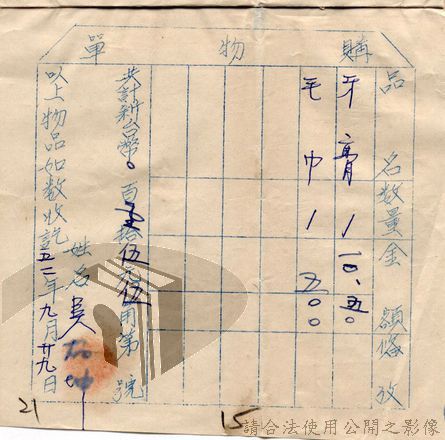 購物單
品名 數量 金額 備攷
牙膏 1 10.50
毛巾 1 五00
共計新台幣0百壹拾伍元伍角第 號
以上物品如数收訖
姓名 吳
五二年九月廿九日
21
15
請合法使用公開之影像